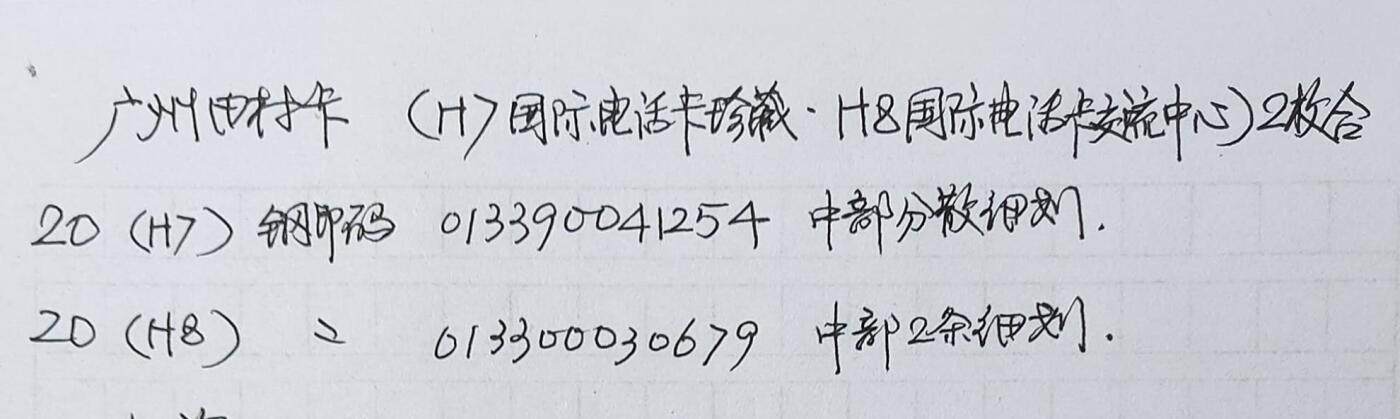 广州田村卡 (H7国际电话卡珍藏·H8国际电话卡交流中心)2枚合
20 (H7) 钢印码 013390041254 中部分散细划.
20 (H8) 〃 013300030679 中部2条细划.